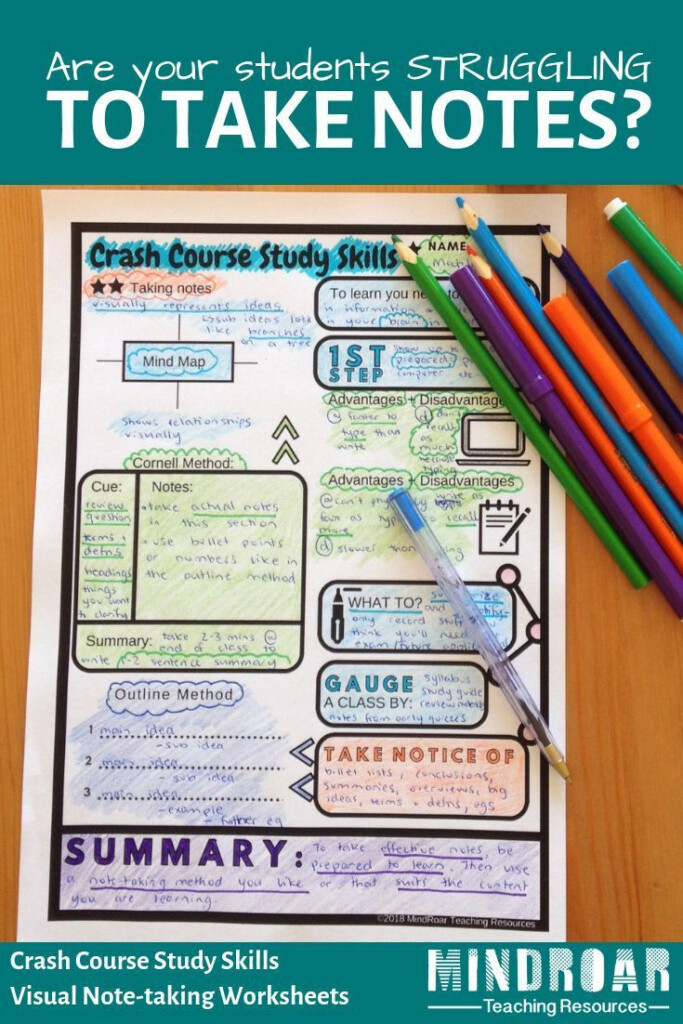 Are your students STRUGGLING
TO TAKE NOTES?
Crash Course Study Skills
NAME
Taking notes
visually represents ideas
↳ sub ideas look
like branches
on a tree
Mind Map
shows relationships
visually
Cornell Method:
Cue:
review
question
terms +
defns
headings
things
you want
to clarify
Notes:
• take actual notes
in this section
• use bullet points
or numbers like in
the outline method
Summary: take 2-3 mins @
end of class to
write 1-2 sentence summary
Outline Method
1 main idea
- sub idea
2 main idea
- sub idea
3 main idea
- example
- further eg
To learn you need to
in information
in your brain in
1ST
STEP
show up to
prepared
computer etc
Advantages + Disadvantage
ⓐ faster to
type than
write
ⓓ don't
recall
as
much
because
typing
Advantages + Disadvantages
ⓐ can't write as
fast as recall
more
ⓓ slower than typing
WHAT TO?
and
only record stuff
think you'll need
exam/future
GAUGE
A CLASS BY:
syllabus
study guide
review
notes from early quizzes
TAKE NOTICE OF
bullet lists, conclusions,
summaries, overviews, big
ideas, terms + defns, egs
SUMMARY: To take effective notes, be
prepared to learn. Then use
a note-taking method you like or that suits the content
you are learning.
©2018 MindRoar Teaching Resources
Crash Course Study Skills
Visual Note-taking Worksheets
MINDROAR
Teaching Resources